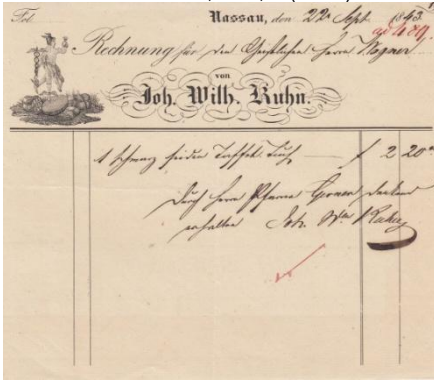 Fol.
Nassau, den 22 Sept. 1843
ad 489.
Rechnung für den Geistlichen Herrn Wagner
von
Joh. Wilh. Kuhn.
1 Schwarz seiden Taffet Tuch — f 2 20
Durch Herrn Pfarrer dankend
erhalten Joh. Wm Kuhn